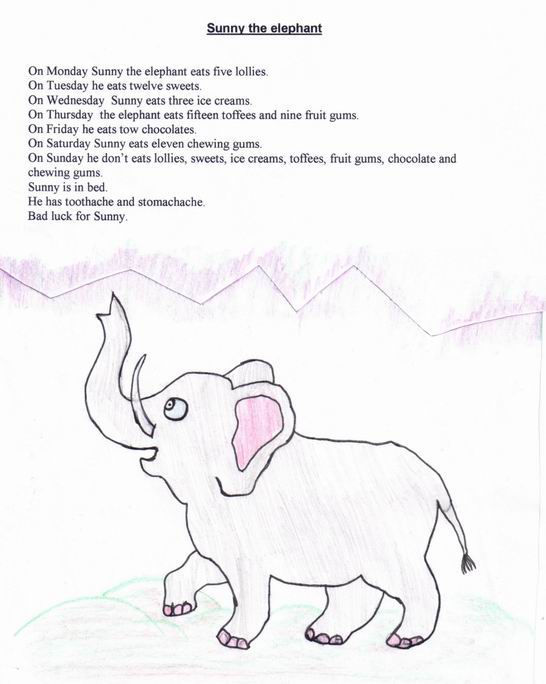 Sunny the elephant
On Monday Sunny the elephant eats five lollies.
On Tuesday he eats twelve sweets.
On Wednesday  Sunny eats three ice creams.
On Thursday  the elephant eats fifteen toffees and nine fruit gums.
On Friday he eats tow chocolates.
On Saturday Sunny eats eleven chewing gums.
On Sunday he don't eats lollies, sweets, ice creams, toffees, fruit gums, chocolate and
chewing gums.
Sunny is in bed.
He has toothache and stomachache.
Bad luck for Sunny.